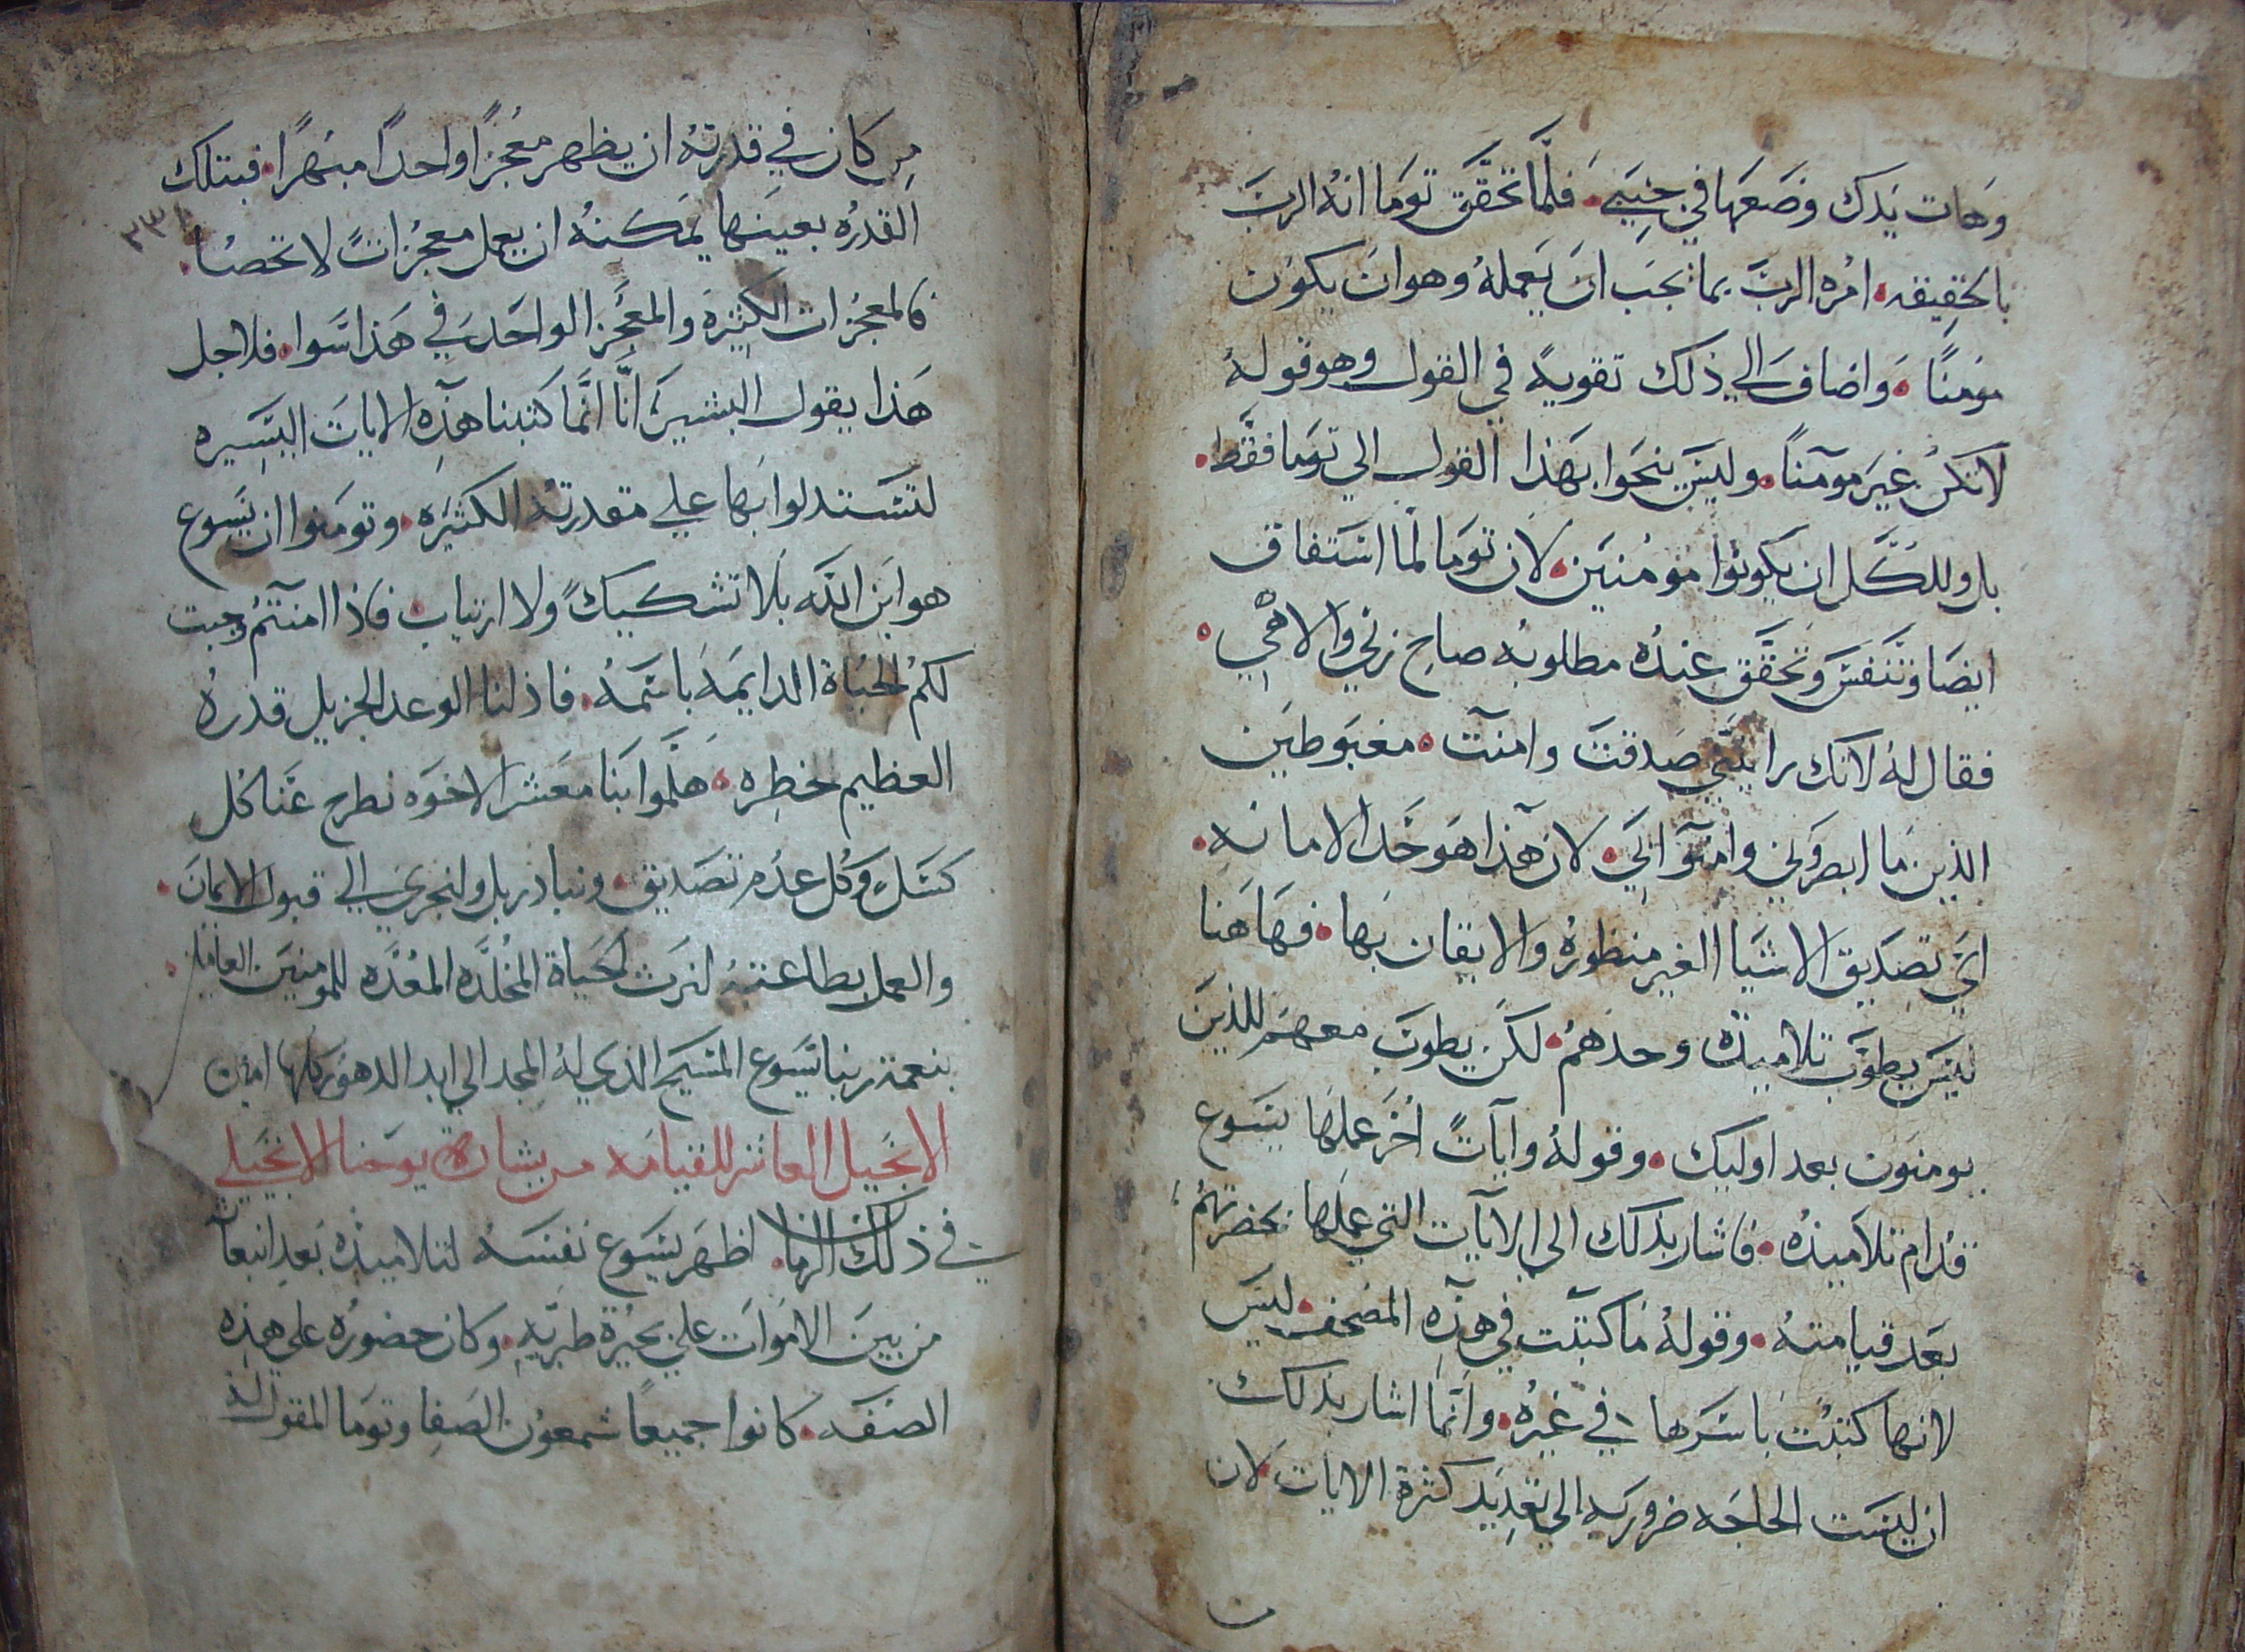 وَهات يَدَك وَضَعَها في جنبيَ. فلمَّا تحقَّق توَما انهُ الربَ
بالحَقِيقه. امُره الربَ بما يجَب انَ يَعملهُ وهو انَ يكوُن
مومنًا. وَاضافَ الي ذلك تقويهً في القول وهو قولهُ
لا تكنُ غيَر مومنًا. وليسَ ينحَوا بهَذا القول الي توَما فقَط.
بل وللكَّل ان يكوُنوُا موُمُنيَن. لان توَما لما اسَتفاق
ايضَا وتَنفسَ وَتحَقَّق عِندُه مطلوبهُ صاحِ ربّي والاهَيِ.
فقال لهُ لانَك رايتَني صَدقتَ وامنتَ. مغبَوطيَن
الذين مَا ابصروَني وامنوَا بيَ. لان هَذا هَوَ حَد الامانهِ.
ايَ تصَديق الاشيَا الغير منظورهُ والايقان بهَا. فهَا هَنا
ليسَ يطوَبَ تلاميذهُ وحدَهمُ. لكَن يطوبَ معهمَ للذينَ
يومنوَن بعد اوليك. وقولهُ واياتً اخُرَ عملهَا يسَوع
قدُام تلاميذهُ. فاشار بذلك الي الايات التي عملهَا بحضرَتهُمُ
بعَد قيامتهُ. وقولهُ مَا كتبَت في هذِه المصَحف. ليسَ
لانها كتبُتَ باسَرها في غيرهُ. وانمَا اشار بذلك
ان ليسَت الحاجَه ضروريه الي تعدِيَد كثرة الايات لان
ن
مِن كان في قدرتهُ ان يظهر معُجزًا واحدًا مبَهرًا. فبتلك
٣٣١
القدرُه بعينَها يمكَنهُ ان يعمل معجُزاتً لا تحَصُا.
فالمعجزات الكثيرَه والمعَجُز الواحَد في هَذا سَوا. فلاجل
هَذا يقول البشيرَ انَّا انمَّا كتبنا هذِه الاياتَ اليسَيره
لتسَتدلوا بهَا علي مقدرتهُ الكثيَره. وتومَنوا ان يسَوع
هو ابَن الله بلَا تشكيكً ولا ارتياب. فاذا امنتمُ وجبت
لكمُ الحَياة الدايمَهَ باسَمهُ. فاذ لنا الوعد الجزيل قدرهُ
العظيم خطِره. هَلمَّوا بَنا معَشر الاخوَه نطرح عَنا كُل
كسَلٍ وَكُل عدَم تصَديق. ونبادر بل ولنجريَ الي قبول الايمانَ.
والعمل بطاعتهُ لنرث الحَياة المخُلدَّه المعُدَّه للمومنيَن العاملين.
بنعمة ربنا يسَوع المسَيح الذي لهُ المجَد الي ابد الدهوُر كلها امين
الانجَيل العاشر للقيامَه من بشارة يوحَنا الانجَيلي
في ذلك الزمان. اظهَر يسَوع نفسَهُ لتلاميذهُ بَعد انبعَاثه
من بيَن الاموَات علي بحيُرة طبريَه. وكان حضورُه علي هذِه
الصَفَه. كانوا جميعًا شمعوُن الصَفا وتوَما المقول له